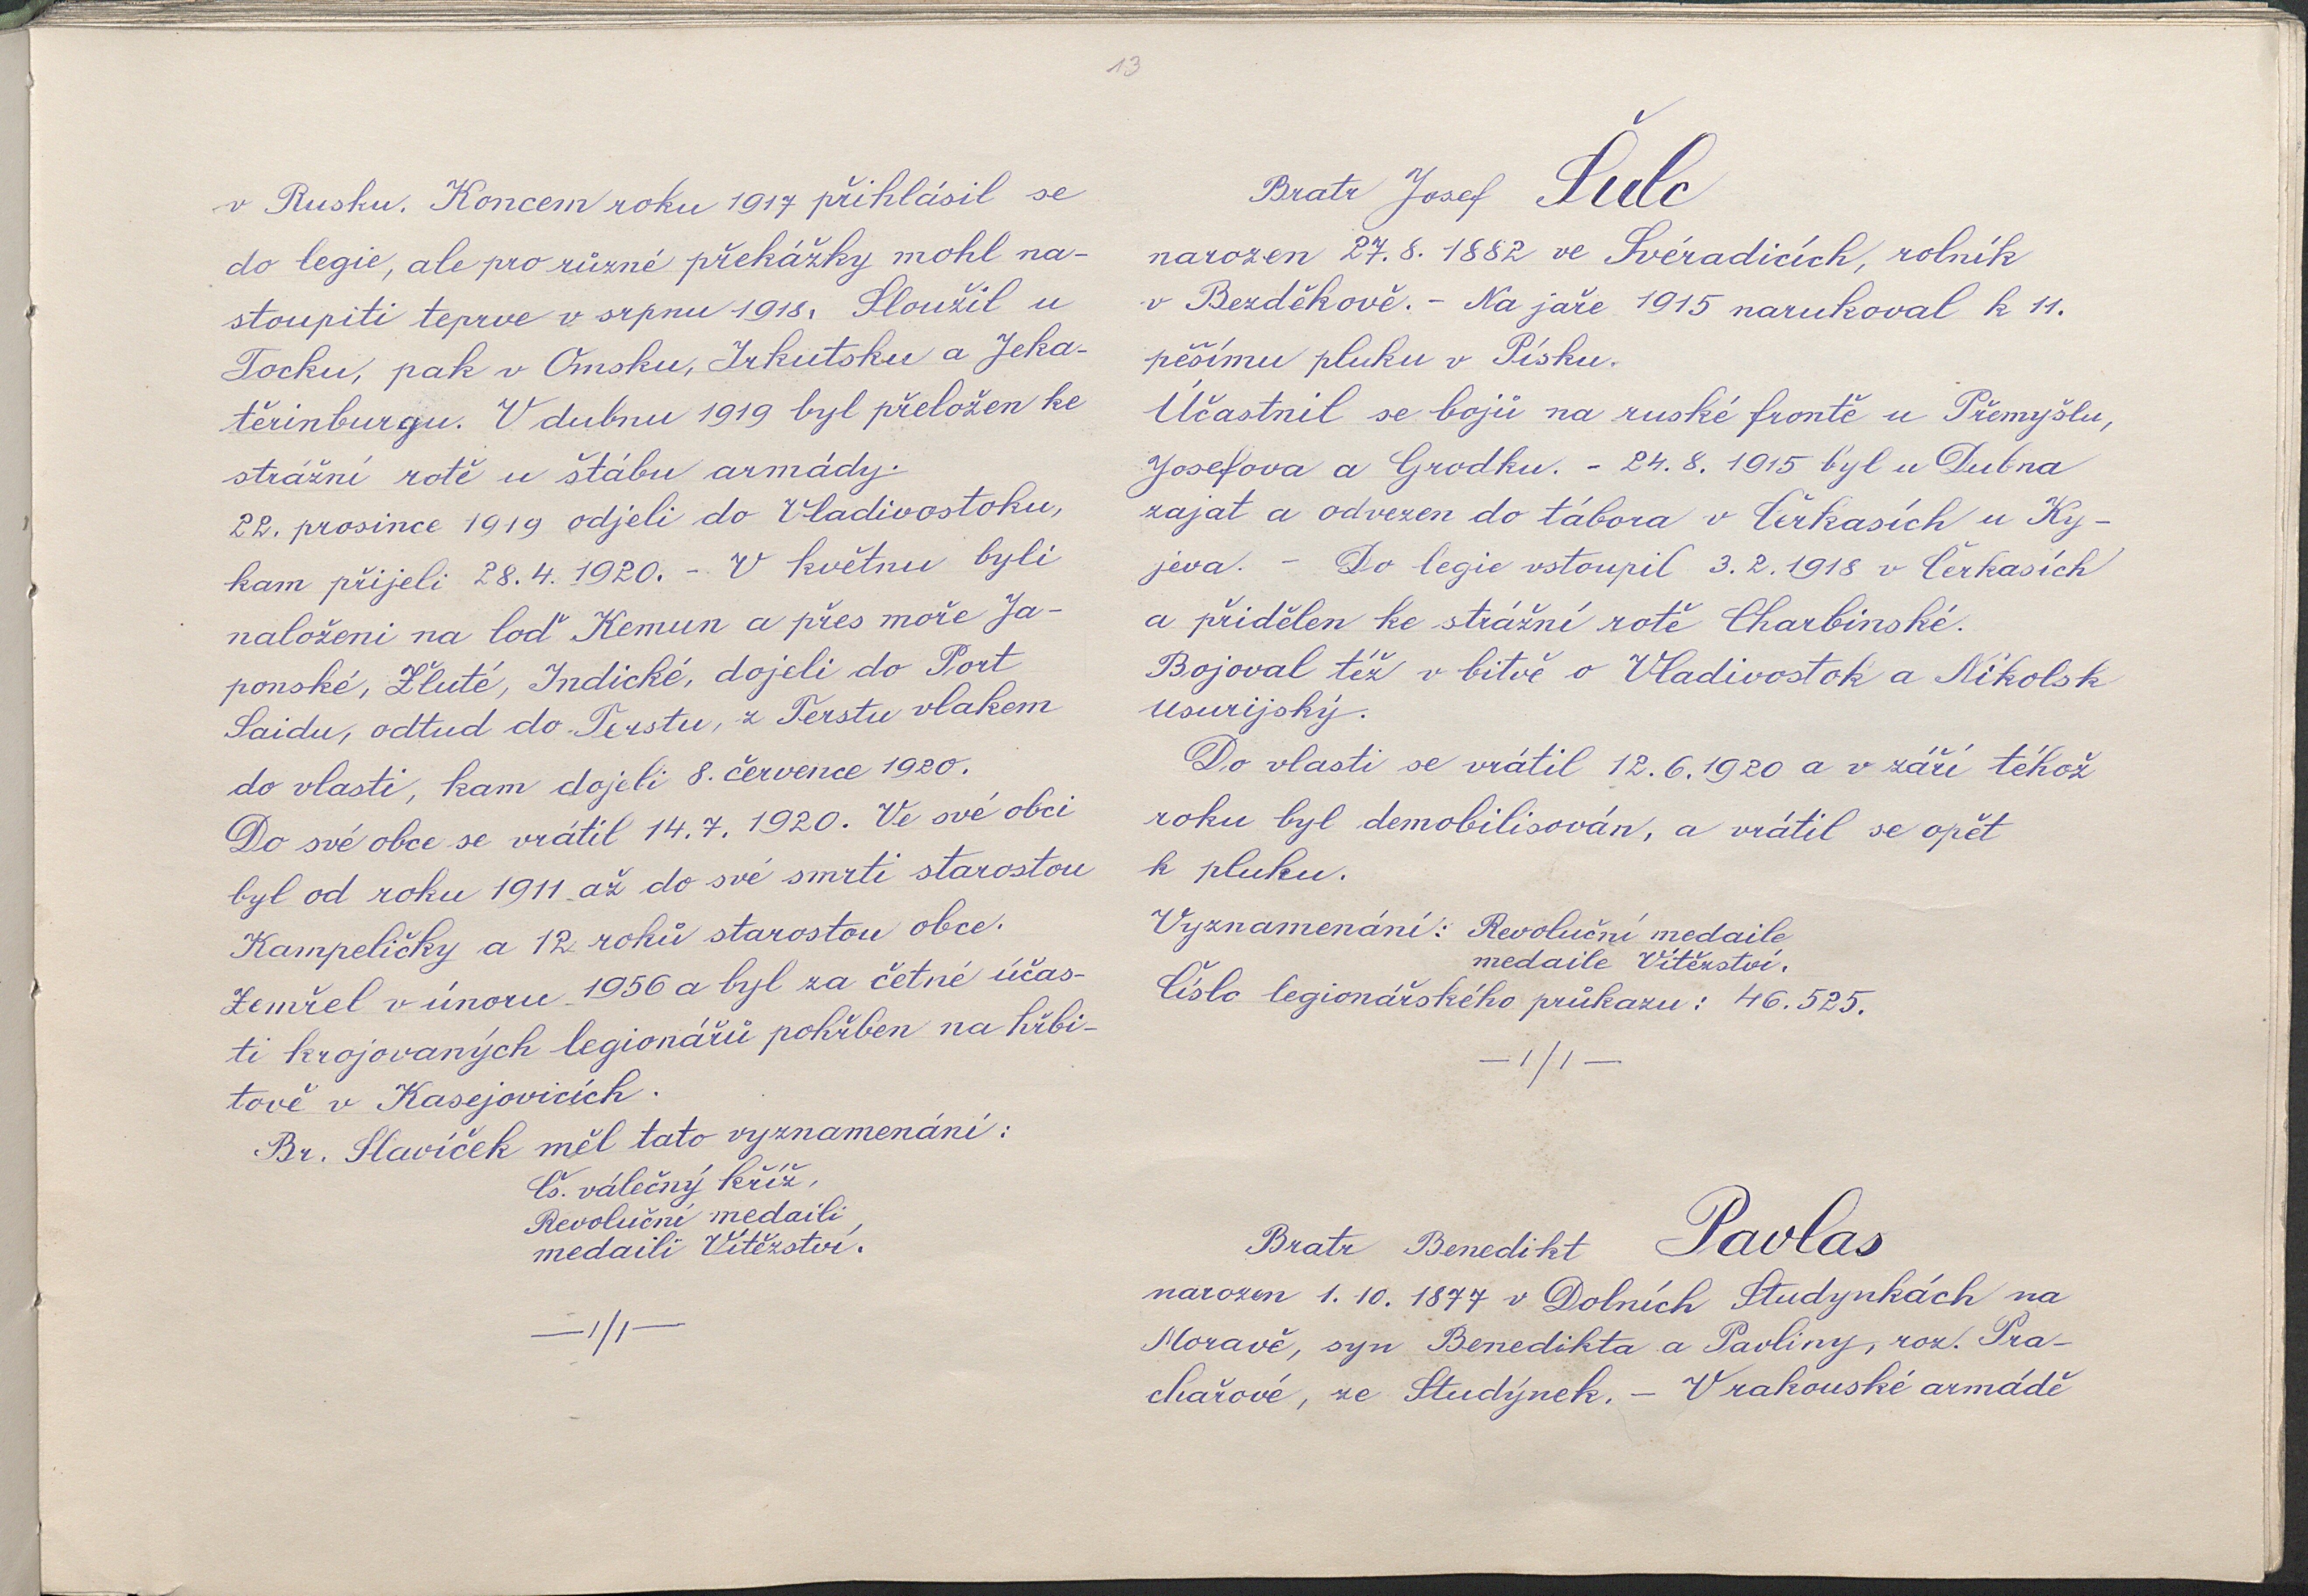 13
v Rusku. Koncem roku 1917 přihlásil se
do legie, ale pro různé překážky mohl na-
stoupiti teprve v srpnu 1918. Sloužil u
Tocku, pak v Omsku, Irkutsku a Jeka-
těrinburgu. V dubnu 1919 byl přeložen ke
strážní rotě u štábu armády.
22. prosince 1919 odjeli do Vladivostoku,
kam přijeli 28.4.1920. - V květnu byli
naloženi na loď Kemun a přes moře Ja-
ponské, Žluté, Indické, dojeli do Port
Saidu, odtud do Terstu, z Terstu vlakem
do vlasti, kam dojeli 8. července 1920.
Do své obce se vrátil 14.7.1920. Ve své obci
byl od roku 1911 až do své smrti starostou
Kampeličky a 12 roků starostou obce.
Zemřel v únoru 1956 a byl za četné účas-
ti krojovaných legionářů pohřben na hřbi-
tově v Kasejovicích.
Br. Slavíček měl tato vyznamenání:
Čs. válečný kříž,
Revoluční medaili,
medaili Vítězství.
—1/1—
Bratr Josef Šulc
narozen 27.8.1882 ve Svéradicích, rolník
v Bezděkově. - Na jaře 1915 narukoval k 11.
pěšímu pluku v Písku.
Účastnil se bojů na ruské frontě u Přemyšlu,
Josefova a Grodku. - 24.8.1915 byl u Dubna
zajat a odvezen do tábora v Čerkasích u Ky-
jeva. - Do legie vstoupil 3.2.1918 v Čerkasích
a přidělen ke strážní rotě Charbinské.
Bojoval též v bitvě o Vladivostok a Nikolsk
usurijský.
Do vlasti se vrátil 12.6.1920 a v září téhož
roku byl demobilisován, a vrátil se opět
k pluku.
Vyznamenání: Revoluční medaile
medaile Vítězství.
Číslo legionářského průkazu: 46.525.
—1/1—
Bratr Benedikt Pavlas
narozen 1.10.1877 v Dolních Studynkách na
Moravě, syn Benedikta a Pavliny, roz. Pra-
chařové, ze Studýnek. - V rakouské armádě